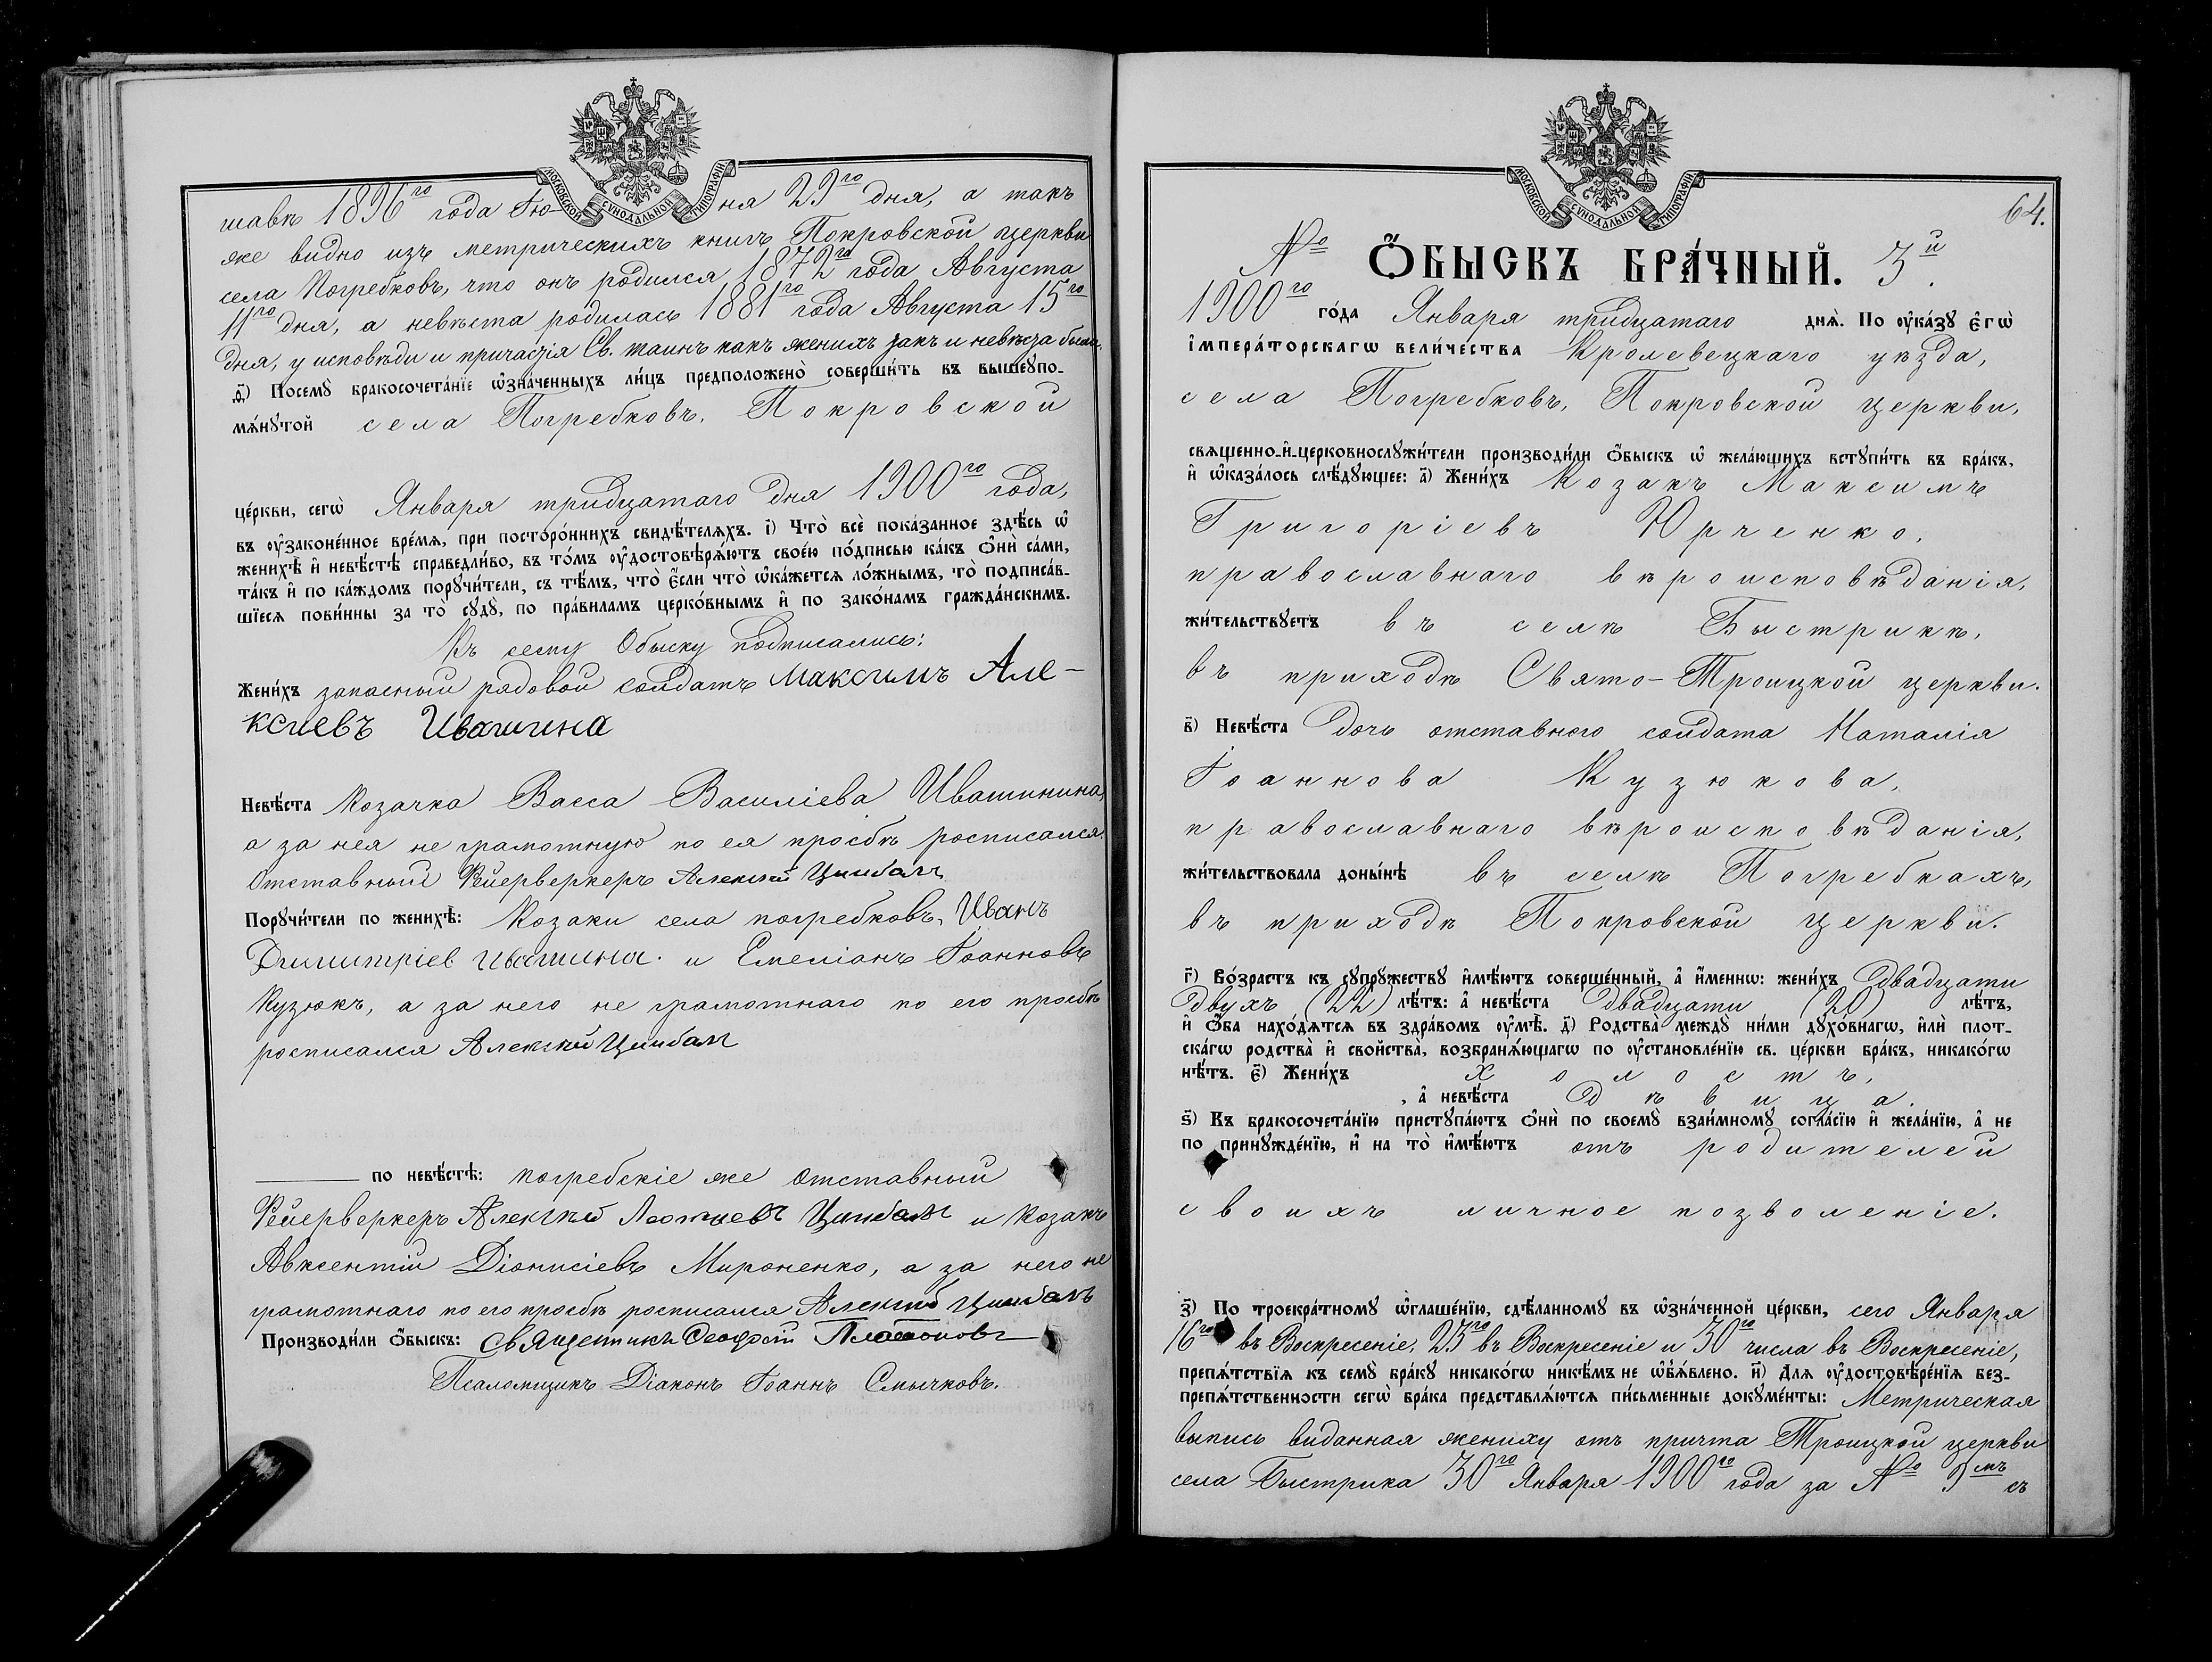 МОСКОВСКОЙ СѴНОДАЛЬНОЙ ТИПОГРАФІИ
шавѣ 1896го года Іюня 29го дня, а такъ
же видно изъ метрическихъ книгъ Покровской церкви
села Погребковъ, что онъ родился 1872го года Августа
11го дня, а невѣста родилась 1881го года Августа 15го
дня, у исповѣди и причастія Св. таинъ какъ женихъ такъ и невѣста были.
ѳ҃) Посемꙋ̀ бракосочета́нїе ѡ҆зна́ченныхъ ли́цъ предположено̀ соверши́ть въ вышеꙋпо-
мѧ́нꙋтой села Погребковъ, Покровской
це́ркви, сегѡ̀ Января тридцатаго дня 1900го года,
въ ᲂу҆законе́нное вре́мѧ, при посторо́ннихъ свидѣ́телѧхъ. і҃) Что̀ всѐ пока́занное здѣ́сь ѡ҆
женихѣ̀ и҆ невѣ́стѣ справедли́во, въ то́мъ ᲂу҆достовѣрѧ́ютъ свое́ю по́дписью ка́къ ѻ҆нѝ са́ми,
та́къ и҆ по ка́ждомъ порꙋчи́тели, съ тѣ́мъ, что̀ є҆́сли что̀ ѡ҆ка́жетсѧ ло́жнымъ, то̀ подписа́в-
шїесѧ пови́нны за то̀ сꙋдꙋ̀, по пра́виламъ церко́внымъ и҆ по зако́намъ гражда́нскимъ.
Къ сему Обыску подписались:
Жени́хъ запасный рядовой солдатъ Максимъ Але-
ксиевъ Ивашина
Невѣ́ста Козачка Васса Василіева Ивашинина,
а за нея не грамотную по ея просбѣ росписался
Отставный Фейерверкеръ Алексѣй Цимбалъ
Порꙋчи́тели по женихѣ̀: Козаки села погребковъ, Иванъ
Димитріев ивашина. и Емеліанъ Іоанновъ
Кузюкъ, а за него не грамотнаго по его просбѣ
росписался Алексѣй Цимбал
по невѣ́стѣ: погребскіе же Отставный
Фейерверкеръ Алексѣй Леонтиевъ Цимбалъ и козакъ
Авксентій Діонисіевъ Мироненко, а за него не
грамотнаго по его просбѣ росписался Алексѣй Цимбалъ
Производи́ли ѻ҆́быскъ: священникъ Платоновъ
Псаломщикъ Діаконъ Іоаннъ Смычковъ.
МОСКОВСКОЙ СѴНОДАЛЬНОЙ ТИПОГРАФІИ
64.
No Ѻ҆́БЫСКЪ БРА́ЧНЫЙ. 3й.
1900го го́да Января тридцатаго днѧ̀. По ᲂу҆ка́зꙋ є҆гѡ̀
і҆мпера́торскагѡ вели́чества Кролевецкаго уѣзда,
села Погребковъ, Покровской церкви,
свѧщенно-и҆-церковнослꙋжи́тели производи́ли ѻ҆́быскъ ѡ҆ жела́ющихъ встꙋпи́ть въ бра́къ,
и҆ ѡ҆каза́лось слѣ́дꙋющее: а҃) Жени́хъ Козакъ Максимъ
Григоріевъ Юрченко,
православнаго вѣроисповѣданія,
жи́тельствꙋетъ въ селѣ Быстрикѣ,
въ приходѣ Свято-Троицкой церкви.
в҃) Невѣ́ста дочь отставного солдата Наталія
Іоаннова Кузюкова,
православнаго вѣроисповѣданія,
жи́тельствовала доны́нѣ въ селѣ Погребкахъ,
въ приходѣ Покровской церкви.
г҃) Во́зрастъ къ сꙋпрꙋ́жествꙋ и҆мѣ́ютъ соверше́нный, а҆ и҆́меннѡ: жени́хъ двадцати
двухъ (22) лѣ́тъ: а҆ невѣ́ста двадцати (20) лѣ́тъ,
и҆ ѻ҆́ба нахо́дѧтсѧ въ здра́вомъ ᲂу҆мѣ̀. д҃) Родства̀ междꙋ̀ ни́ми дꙋхо́внагѡ, и҆лѝ плот-
ска́гѡ родства̀ и҆ свойства̀, возбранѧ́ющагѡ по ᲂу҆становле́нїю св. це́ркви бра́къ, никако́гѡ
нѣ́тъ. є҃) Жени́хъ холостъ,
, а҆ невѣ́ста дѣвица.
ѕ҃) Къ бракосочета́нїю пристꙋпа́ютъ ѻ҆нѝ по своемꙋ̀ взаи́мномꙋ согла́сїю и҆ жела́нїю, а҆ не
по принꙋжде́нїю, и҆ на то̀ и҆мѣ́ютъ отъ родителей
своихъ личное позволеніе.
з҃) По троекра́тномꙋ ѡ҆глаше́нїю, сдѣ́ланномꙋ въ ѡ҆зна́ченной це́ркви, сего Января
16го въ Воскресеніе, 23го въ Воскресеніе и 30го числа въ Воскресеніе,
препѧ́тствїѧ къ семꙋ̀ бра́кꙋ никако́гѡ никѣ́мъ не ѡ҆б̾ѧ́влено. и҃) Для ᲂу҆достовѣре́нїѧ без-
препѧ́тственности сегѡ̀ бра́ка представлѧ́ютсѧ пи́сьменные докꙋме́нты: Метрическая
выпись виданная жениху отъ причта Троицкой церкви
села Быстрика 30го Января 1900го года за No 9мъ съ